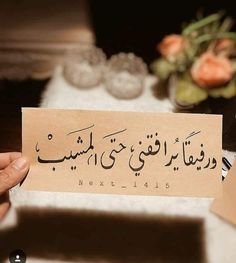 ورفيقًا يُرافقني، حتىَ المشيَبْ
Next_1415